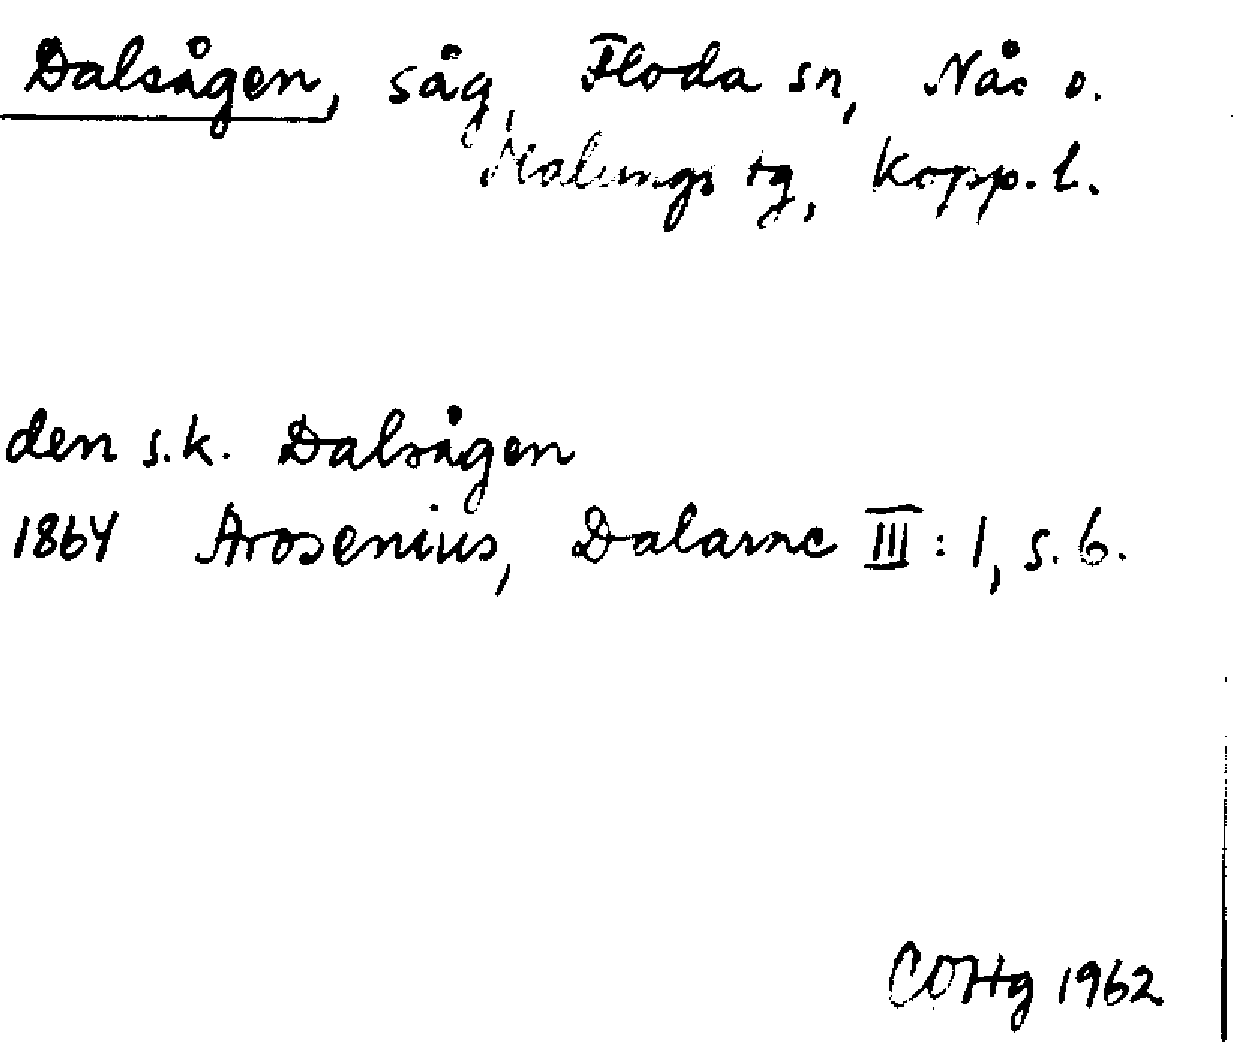 Dalsågen, såg, Floda sn, Nås o.
Malungs tg, Kopp. l.
den s.k. Dalsågen
1864 Arosenius, Dalarne III: 1, s. 6.
COHg 1962